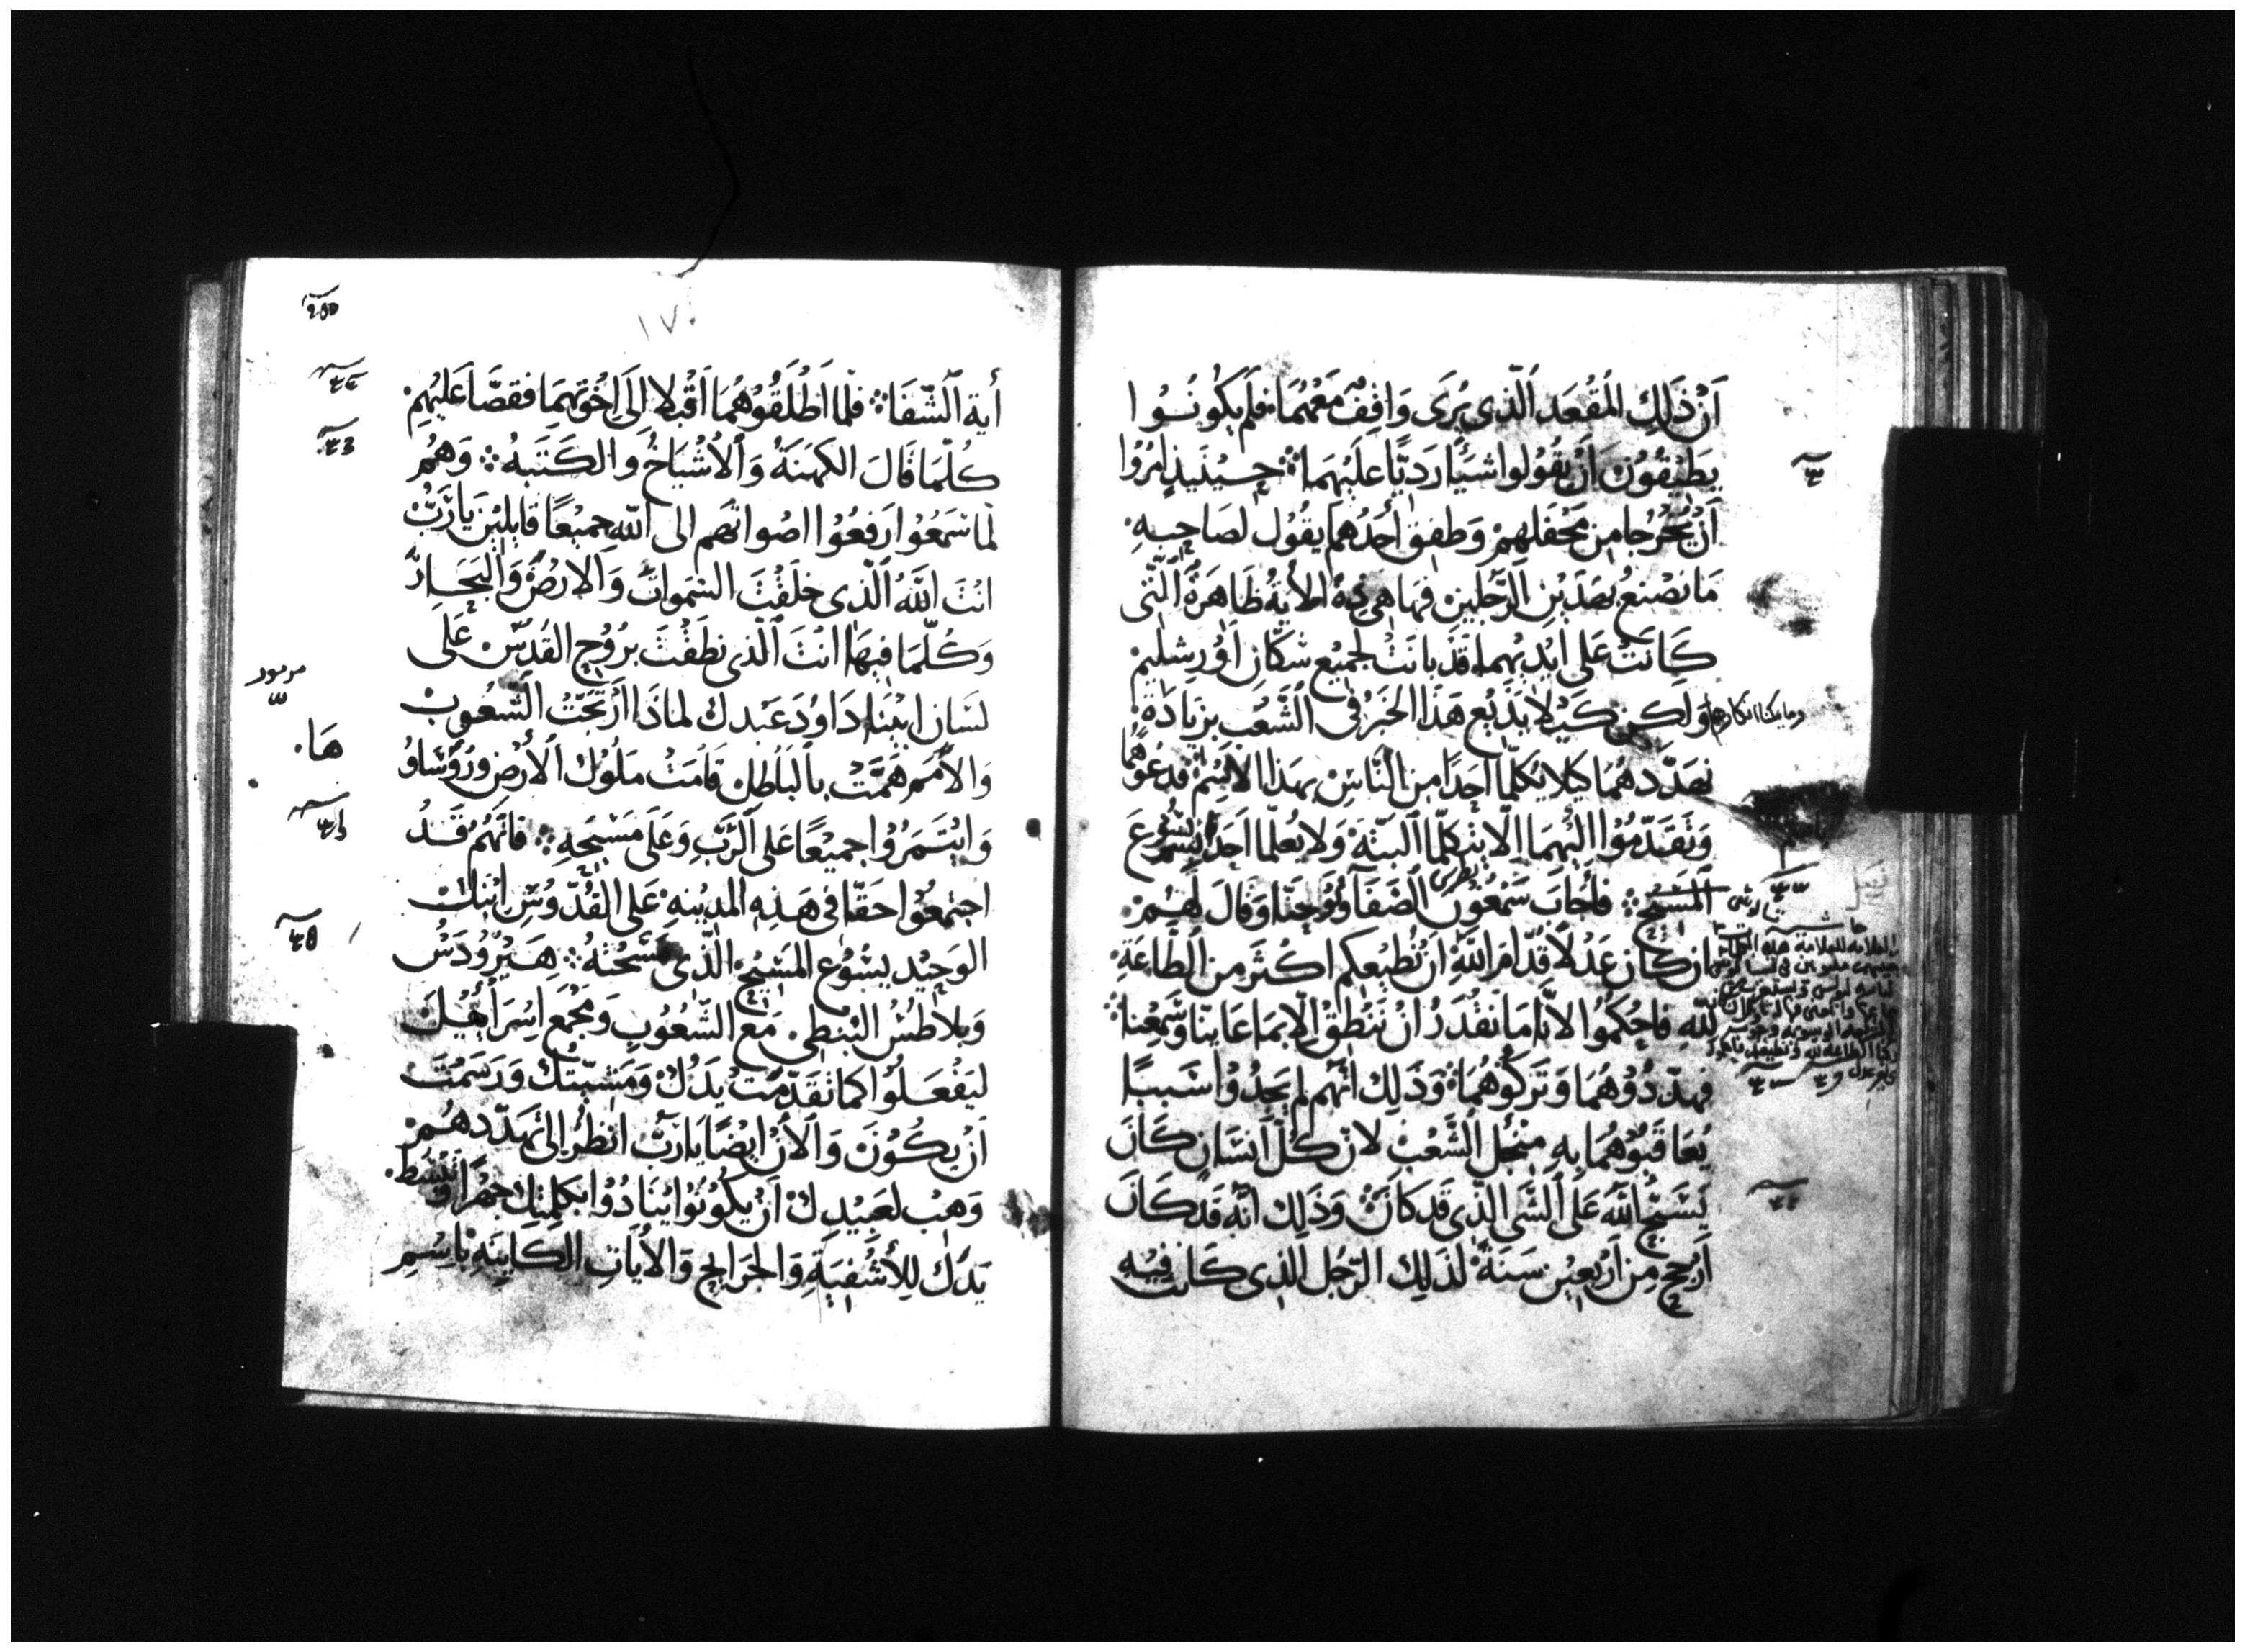 اَنْ ذَلِكَ المُقْعَد اَلّذي يُرَى وَاقِفْ مَعَهُمَا فلم يَكُونُوا
يَطِيْقُوْن اَنْ يَقُولوا شَيًّا رَدِيًّا عليْهمَا ۞ حِيْنَيذٍ امرُوا
اَنْ يُخْرُجَا مِن مَحْفلهِمْ وَطفِقَ أحدُهم يقُول لصَاحِبِهِ
مَا نصْنعُ بهَذَيْنِ الرّجُلينِ فهَا هِي هَذِهِ الأيةُ ظَاهرَةٌ اَلّتي
كَانَتْ عَلى ايْديْهِما قَدْ بانَتْ لجميْع سُكّان اوُرِشليْم
وَلكن كَيْلا يَذيْع هَذَا الخَبرُ في الشّعْب بزيَادَة
نهَدّدهُمَا كيلا يكلّمَا احَدًا من النّاسْ بهَذا الاسْم ۞ فدعَوْهُمَا
وَتقَدّمُوْا اليْهمَا اَلّا يتكلّمَا البتّهْ وَلا يُعلّما احَدًا باسْم يسُوع
المسِيْح ۞ فأجَابَ سَمْعُون الصّفَا وَيُوحَنّا وَقالَ لهُمْ
ان كَانَ عَدْلًا قدّامَ اللّهِ اَنْ نُطيْعكم اكثرَ مِن الطّاعَةِ
للهِ فاحكمُوا لانّا مَا نقْدَرُ انْ ننْطقْ الّا بمَا عَاينّا وَسَمعْنا ۞
فهدّدُوْهُمَا وَترَكُوْهُمَا وَذَلِك انّهم لم يَجدُوْا سَببًا
يُعَاقبُوْهُمَا بِهِ مِنْ أجْل الشّعْبْ لانّ كُلّ انسَانٍ كَانَ
يُسَبّحُ اللّه عَلَى الشّى الّذي قدْ كَانَ ۞ وَذَلِك انّه قدْ كَانَ
اَرْجح مِن اَرْبعِيْن سَنَةْ لذَلِك الرّجُل الّذي كَانت فيْهِ
وما يمكننا انكارها
أية الشّفَا ۞ فلمّا اَطْلَقُوْهُمَا اَقْبَلا إلَى اخْوتهِمَا فقصَّا عَليْهِمْ
كُلّمَا قَالَ الكهَنَةُ وَالاشْيَاخُ وَالكَتَبهُ ۞ وَهُمْ
لمّا سَمعُوْا رَفعُوْا اصْواتهم الى اللّه جميْعًا قايليْن يَا رَبُّ
انْتَ اللّهُ الّذي خلَقْتَ السّموَاتُ وَالارضْ وَالبحَارْ
وَكُلّمَا فيهَا انْتَ الّذي نطَقْتَ برُوْح القُدُسْ عَلَى
لسَان ابيْنا دَاوُدَ عَبْدك لماذَا ارْتجّتْ الشّعُوبْ
وَالأمَم همَّتْ بالبَاطِل قامَتْ ملُوْك الأرْضِ وَرُؤسَاوُ
وَايْتَمَرُوْا جميْعًا عَلى الرّبِّ وَعَلى مَسِيْحِهِ ۞ فانّهُمُ قدُ
اجتمعُوا حَقّا في هَذِهِ المدِيْنةِ عَلى القُدّوْسِ ابْنكْ
الوَحِيْد يسُوْع المَسِيْح الّذي مَسَحْتهُ ۞ هِيْرُوْدَسُ
وَبلاطسُ النّبْطى مَع الشّعُوْبِ وَمجْمع اسْرَائيْلَ
ليَفْعَلُوا كمَا تقَدّمَتْ يَدُكْ وَمَشيّتكْ وَرَسَمَتْ
اَنْ يكُوْنَ وَالأنْ ايْضًا يا ربّ انظُرْ إلى تهَدّدهُمْ
وَهَبْ لعَبيْدكْ اَنْ يكُوْنُوْا ينَادُوْا بكلمتِك جهْرًا وَتبْسُط
يَدَكْ للأشْفيَةِ وَالجرَايحِ وَالأيَاتِ الكَاينَةِ باسْمِ
١٧٠
مزمور
هَا